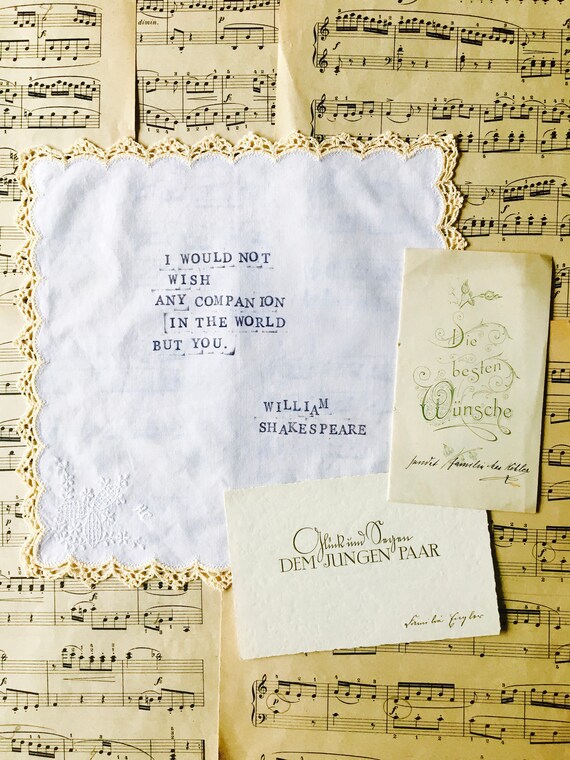 dimin.
I WOULD NOT
WISH
ANY COMPANION
IN THE WORLD
BUT YOU.
WILLIAM
SHAKESPEARE
Die
besten
Wünsche
sendet Familie
Glück und Segen
DEM JUNGEN PAAR
Familie